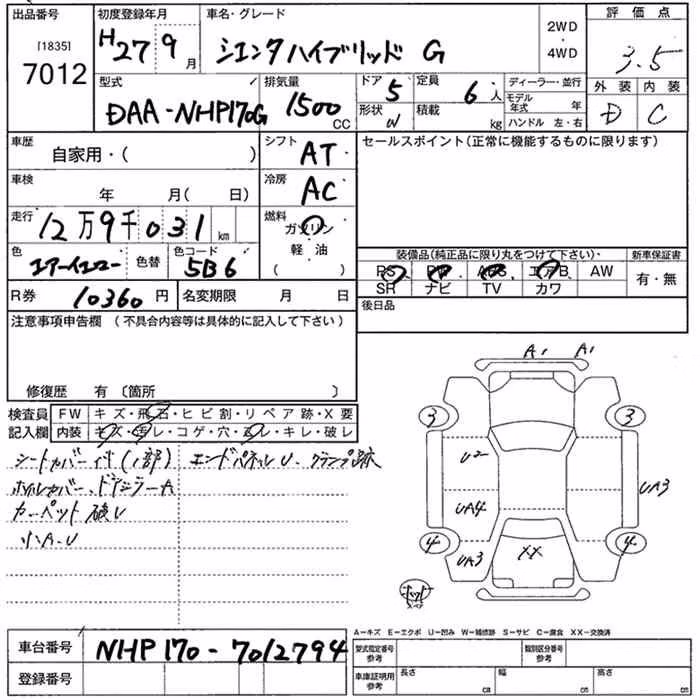 出品番号 初度登録年月 車名・グレード 2WD ・ 4WD 評価点
[1835]
7012 H27 9月 シエンタハイブリッド G 3.5
型式 排気量 ドア 5 定員 6人 ディーラー・並行 外装 内装
DAA-NHP170G 1500 CC 形状 W 積載 kg モデル年式 年 D C
ハンドル 左・右
車歴 自家用・( ) シフト AT セールスポイント(正常に機能するものに限ります)
車検 年 月( 日) 冷房 AC
走行 12万9千031km 燃料 ガソリン
軽・油
( )
色 エアーイエロー 色替 色コード 5B6 装備品(純正品に限り丸をつけて下さい)・ 新車保証書
PS PW ABS エアB AW 有・無
R券 10360円 名変期限 月 日 SR ナビ TV カワ
注意事項申告欄 (不具合内容等は具体的に記入して下さい) 後日品
修復歴 有 〔箇所 〕
検査員記入欄 FW キズ・飛石・ヒビ割・リペア跡・X要
内装 キズ・汚レ・コゲ・穴・凹レ・キレ・破レ
シートカバー付(1部) エンドパネルU、クランプ跡
ホイルカバー、ドアミラーA
カーペット破レ
小A・U
A1 A1
3 3
U2
UA4 UA3
4 4
UA3 XX
A−キズ E−エクボ U−凹み W−補修跡 S−サビ C−腐食 XX−交換済
車台番号 NHP170-7012794 型式指定番号 参考 類別区分番号 参考
登録番号 車庫証明用 参考 長さ cm 幅 cm 高さ cm